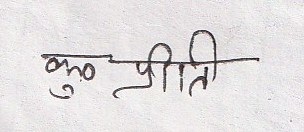 कु० प्रीती